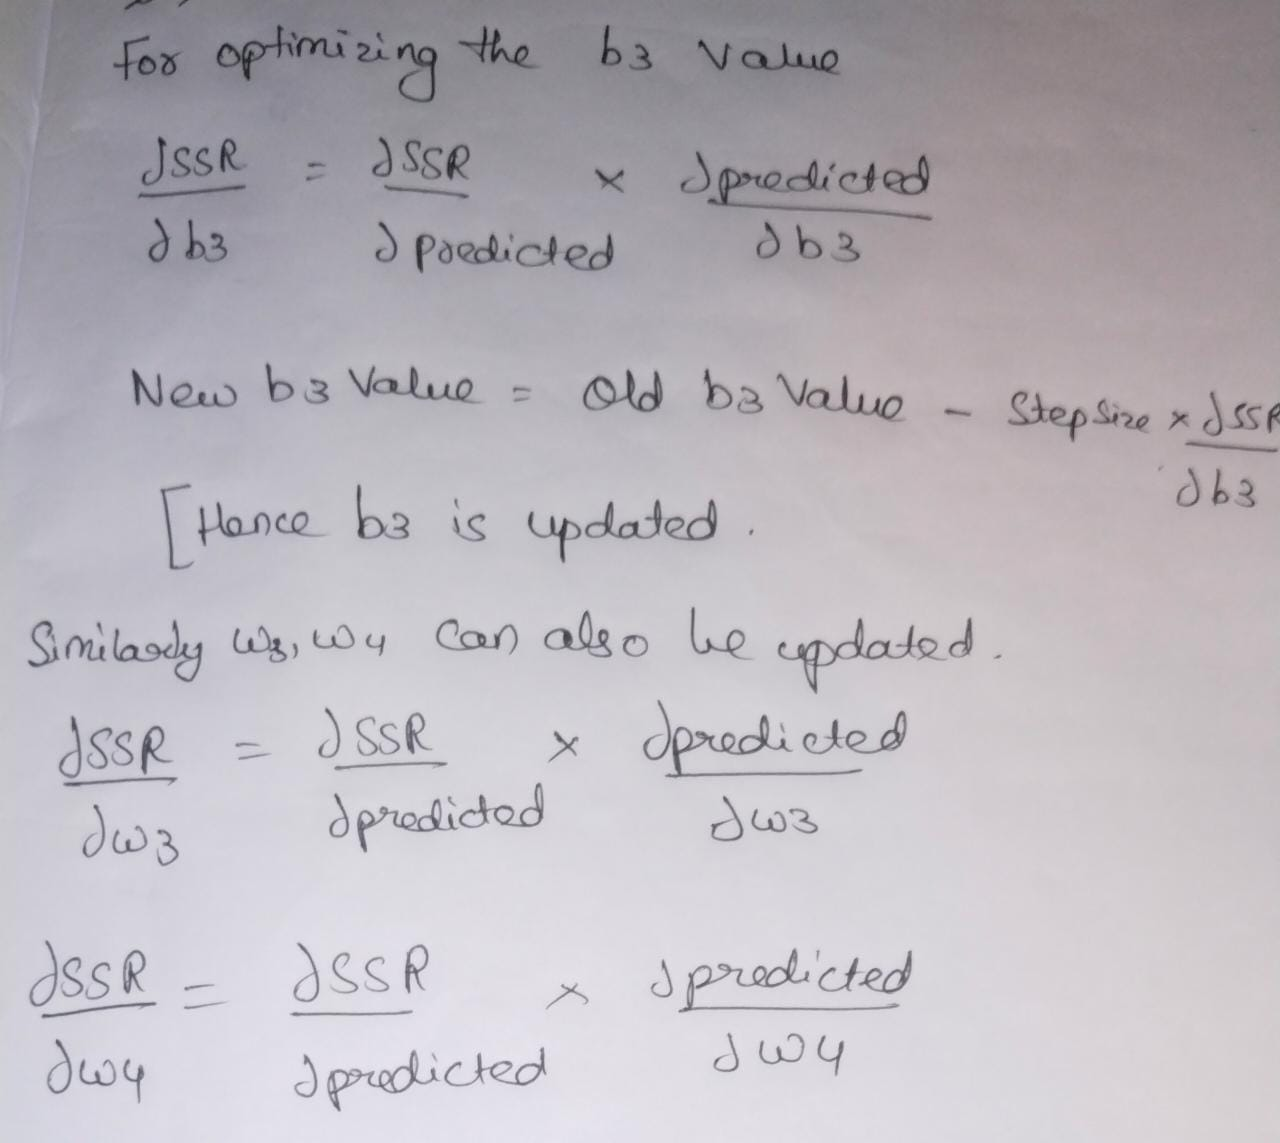 For optimizing the b3 value
∂SSR/∂b3 = ∂SSR/∂predicted × ∂predicted/∂b3
New b3 Value = Old b3 Value - Step Size × ∂SSR/∂b3
[Hence b3 is updated.
Similarly w3, w4 can also be updated.
∂SSR/∂w3 = ∂SSR/∂predicted × ∂predicted/∂w3
∂SSR/∂w4 = ∂SSR/∂predicted × ∂predicted/∂w4